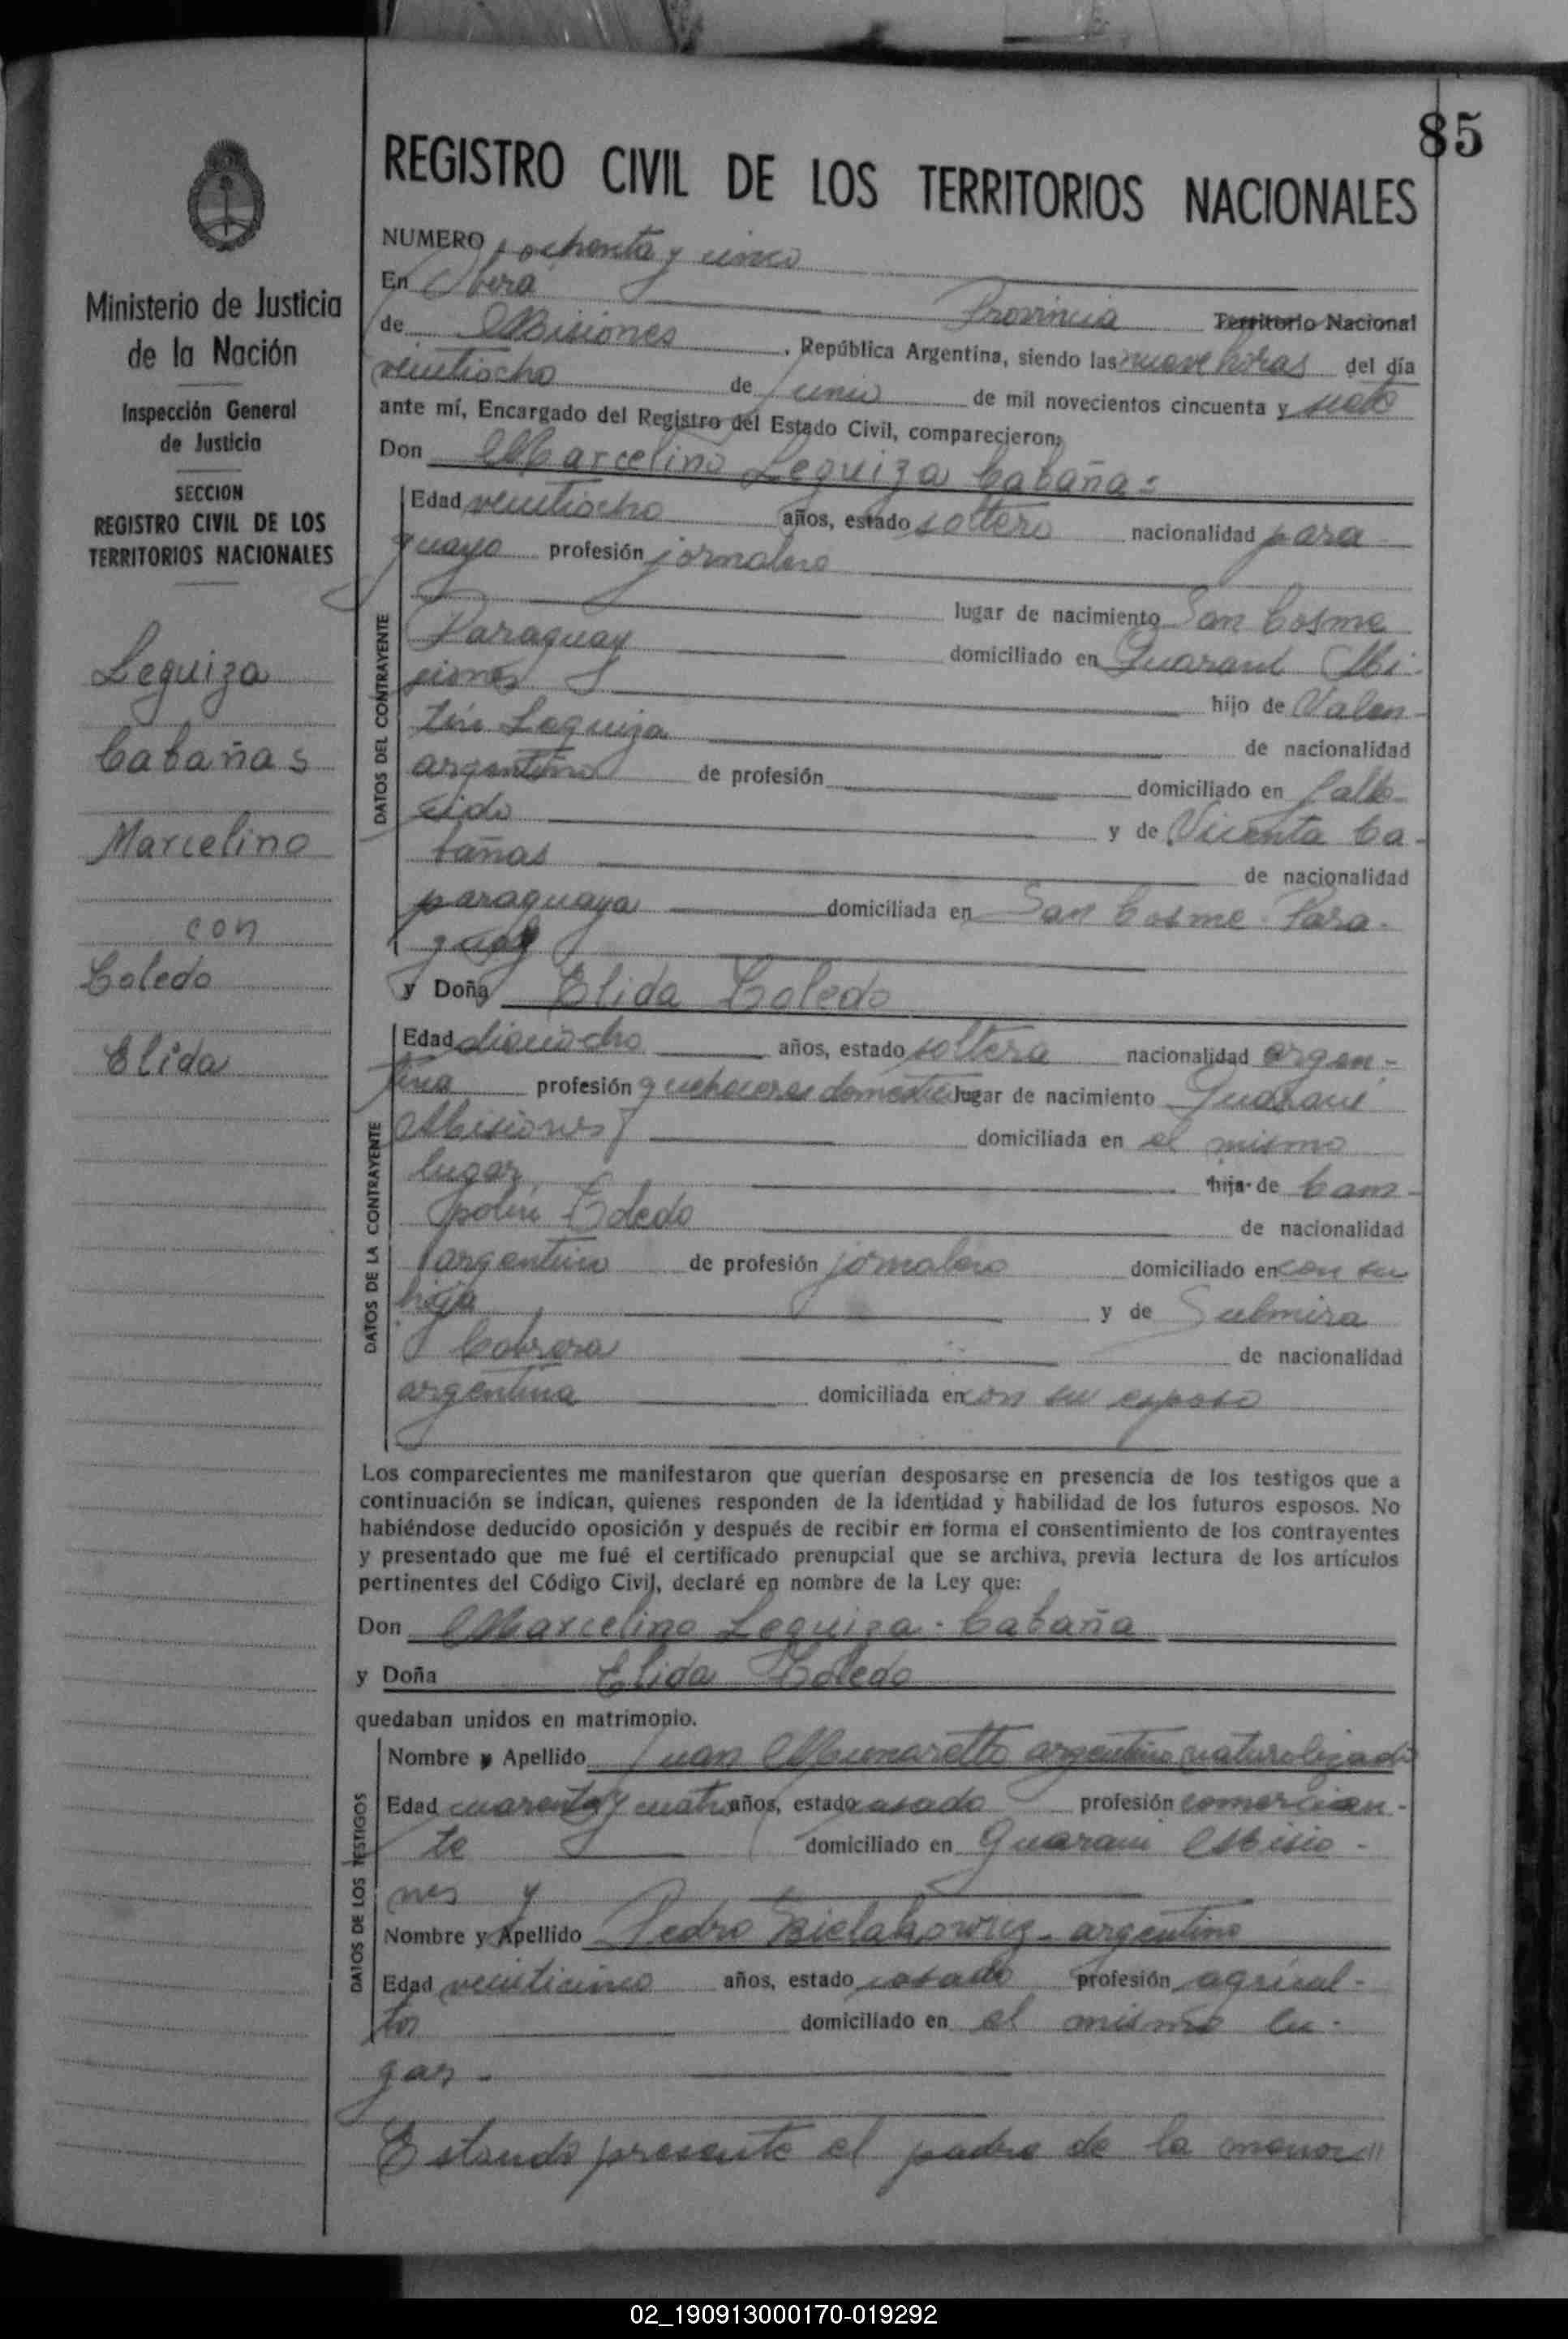 85
REGISTRO CIVIL DE LOS TERRITORIOS NACIONALES
Ministerio de Justicia
de la Nación
Inspección General
de Justicia
SECCION
REGISTRO CIVIL DE LOS
TERRITORIOS NACIONALES
Leguiza
Cabañas
Marcelino
con
Toledo
Elida
NUMERO ochenta y cinco
En Oberá
de Misiones Provincia Territorio Nacional
, República Argentina, siendo las nueve horas del día
veintiocho de Junio de mil novecientos cincuenta y siete
ante mí, Encargado del Registro del Estado Civil, comparecieron:
Don Marcelino Leguiza Cabañas
DATOS DEL CONTRAYENTE
Edad veintiocho años, estado soltero nacionalidad para-
guayo profesión jornalero
lugar de nacimiento San Cosme
Paraguay domiciliado en Guaraní Mi-
siones hijo de Valen-
tín Leguiza de nacionalidad
argentino de profesión domiciliado en falle-
cido y de Vicenta Ca-
bañas de nacionalidad
paraguaya domiciliada en San Cosme Para-
guay
y Doña Elida Toledo
DATOS DE LA CONTRAYENTE
Edad dieciocho años, estado soltera nacionalidad argen-
tina profesión quehaceres domestic lugar de nacimiento Guaraní
Misiones domiciliada en el mismo
lugar hija de Cam-
polín Toledo de nacionalidad
argentino de profesión jornalero domiciliado en con su
hija y de Sulmira
Cabrera de nacionalidad
argentina domiciliada en con su esposo
Los comparecientes me manifestaron que querían desposarse en presencia de los testigos que a
continuación se indican, quienes responden de la identidad y habilidad de los futuros esposos. No
habiéndose deducido oposición y después de recibir en forma el consentimiento de los contrayentes
y presentado que me fué el certificado prenupcial que se archiva, previa lectura de los artículos
pertinentes del Código Civil, declaré en nombre de la Ley que:
Don Marcelino Leguiza - Cabaña
y Doña Elida Toledo
quedaban unidos en matrimonio.
DATOS DE LOS TESTIGOS
Nombre y Apellido Juan Munaretto argentino naturalizado
Edad cuarenta y cuatro años, estado casado profesión comercian-
te domiciliado en Guaraní Misio-
nes y
Nombre y Apellido Pedro Bielakowicz - argentino
Edad veinticinco años, estado casado profesión agricul-
tor domiciliado en el mismo lu-
gar -
Estando presente el padre de la menor
02_190913000170-019292